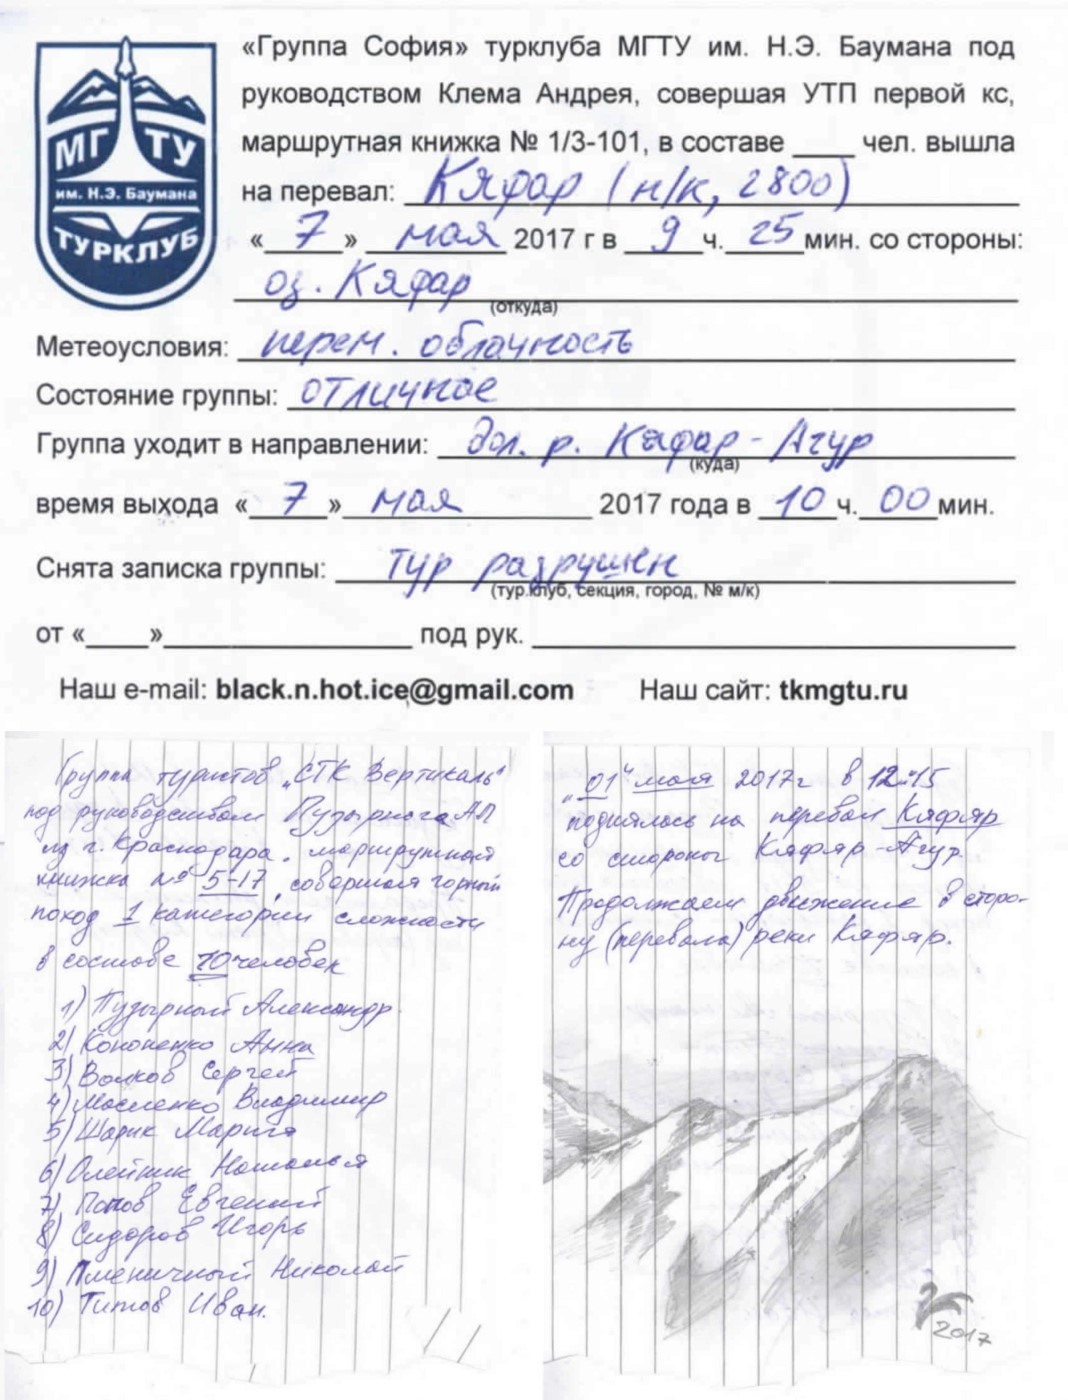 МГ ТУ
им. Н.Э. Баумана
ТУРКЛУБ
«Группа София» турклуба МГТУ им. Н.Э. Баумана под
руководством Клема Андрея, совершая УТП первой кс,
маршрутная книжка № 1/3-101, в составе ____ чел. вышла
на перевал: Кяфар (н/к, 2800)
« 7 » мая 2017 г в 9 ч. 25 мин. со стороны:
оз. Кяфар
(откуда)
Метеоусловия: перем. облачность
Состояние группы: отличное
Группа уходит в направлении: дол. р. Кяфар - Агур
(куда)
время выхода « 7 » мая 2017 года в 10 ч. 00 мин.
Снята записка группы: Тур разрушен
(тур.клуб, секция, город, № м/к)
от «____»________ под рук. ________
Наш e-mail: black.n.hot.ice@gmail.com Наш сайт: tkmgtu.ru
Группа туристов „СТК Вертикаль"
под руководством Пузырного АЛ
из г. Краснодара. маршрутная
книжка № 5-17, совершая горный
поход 1 категории сложности
в составе 10 человек
1) Пузырный Александр
2) Кононенко Анна
3) Волков Сергей
4) Масленко Владимир
5) Шарик Марина
6) Олейник Наталья
7) Попов Евгений
8) Сидоров Игорь
9) Пшеничный Николай
10) Титов Иван.
„01" мая 2017г в 12:15
поднялась на перевал Кяфяр
со стороны Кяфяр-Агур.
Продолжаем движение в сторо-
ну (перевала) реки Кяфяр.
2017